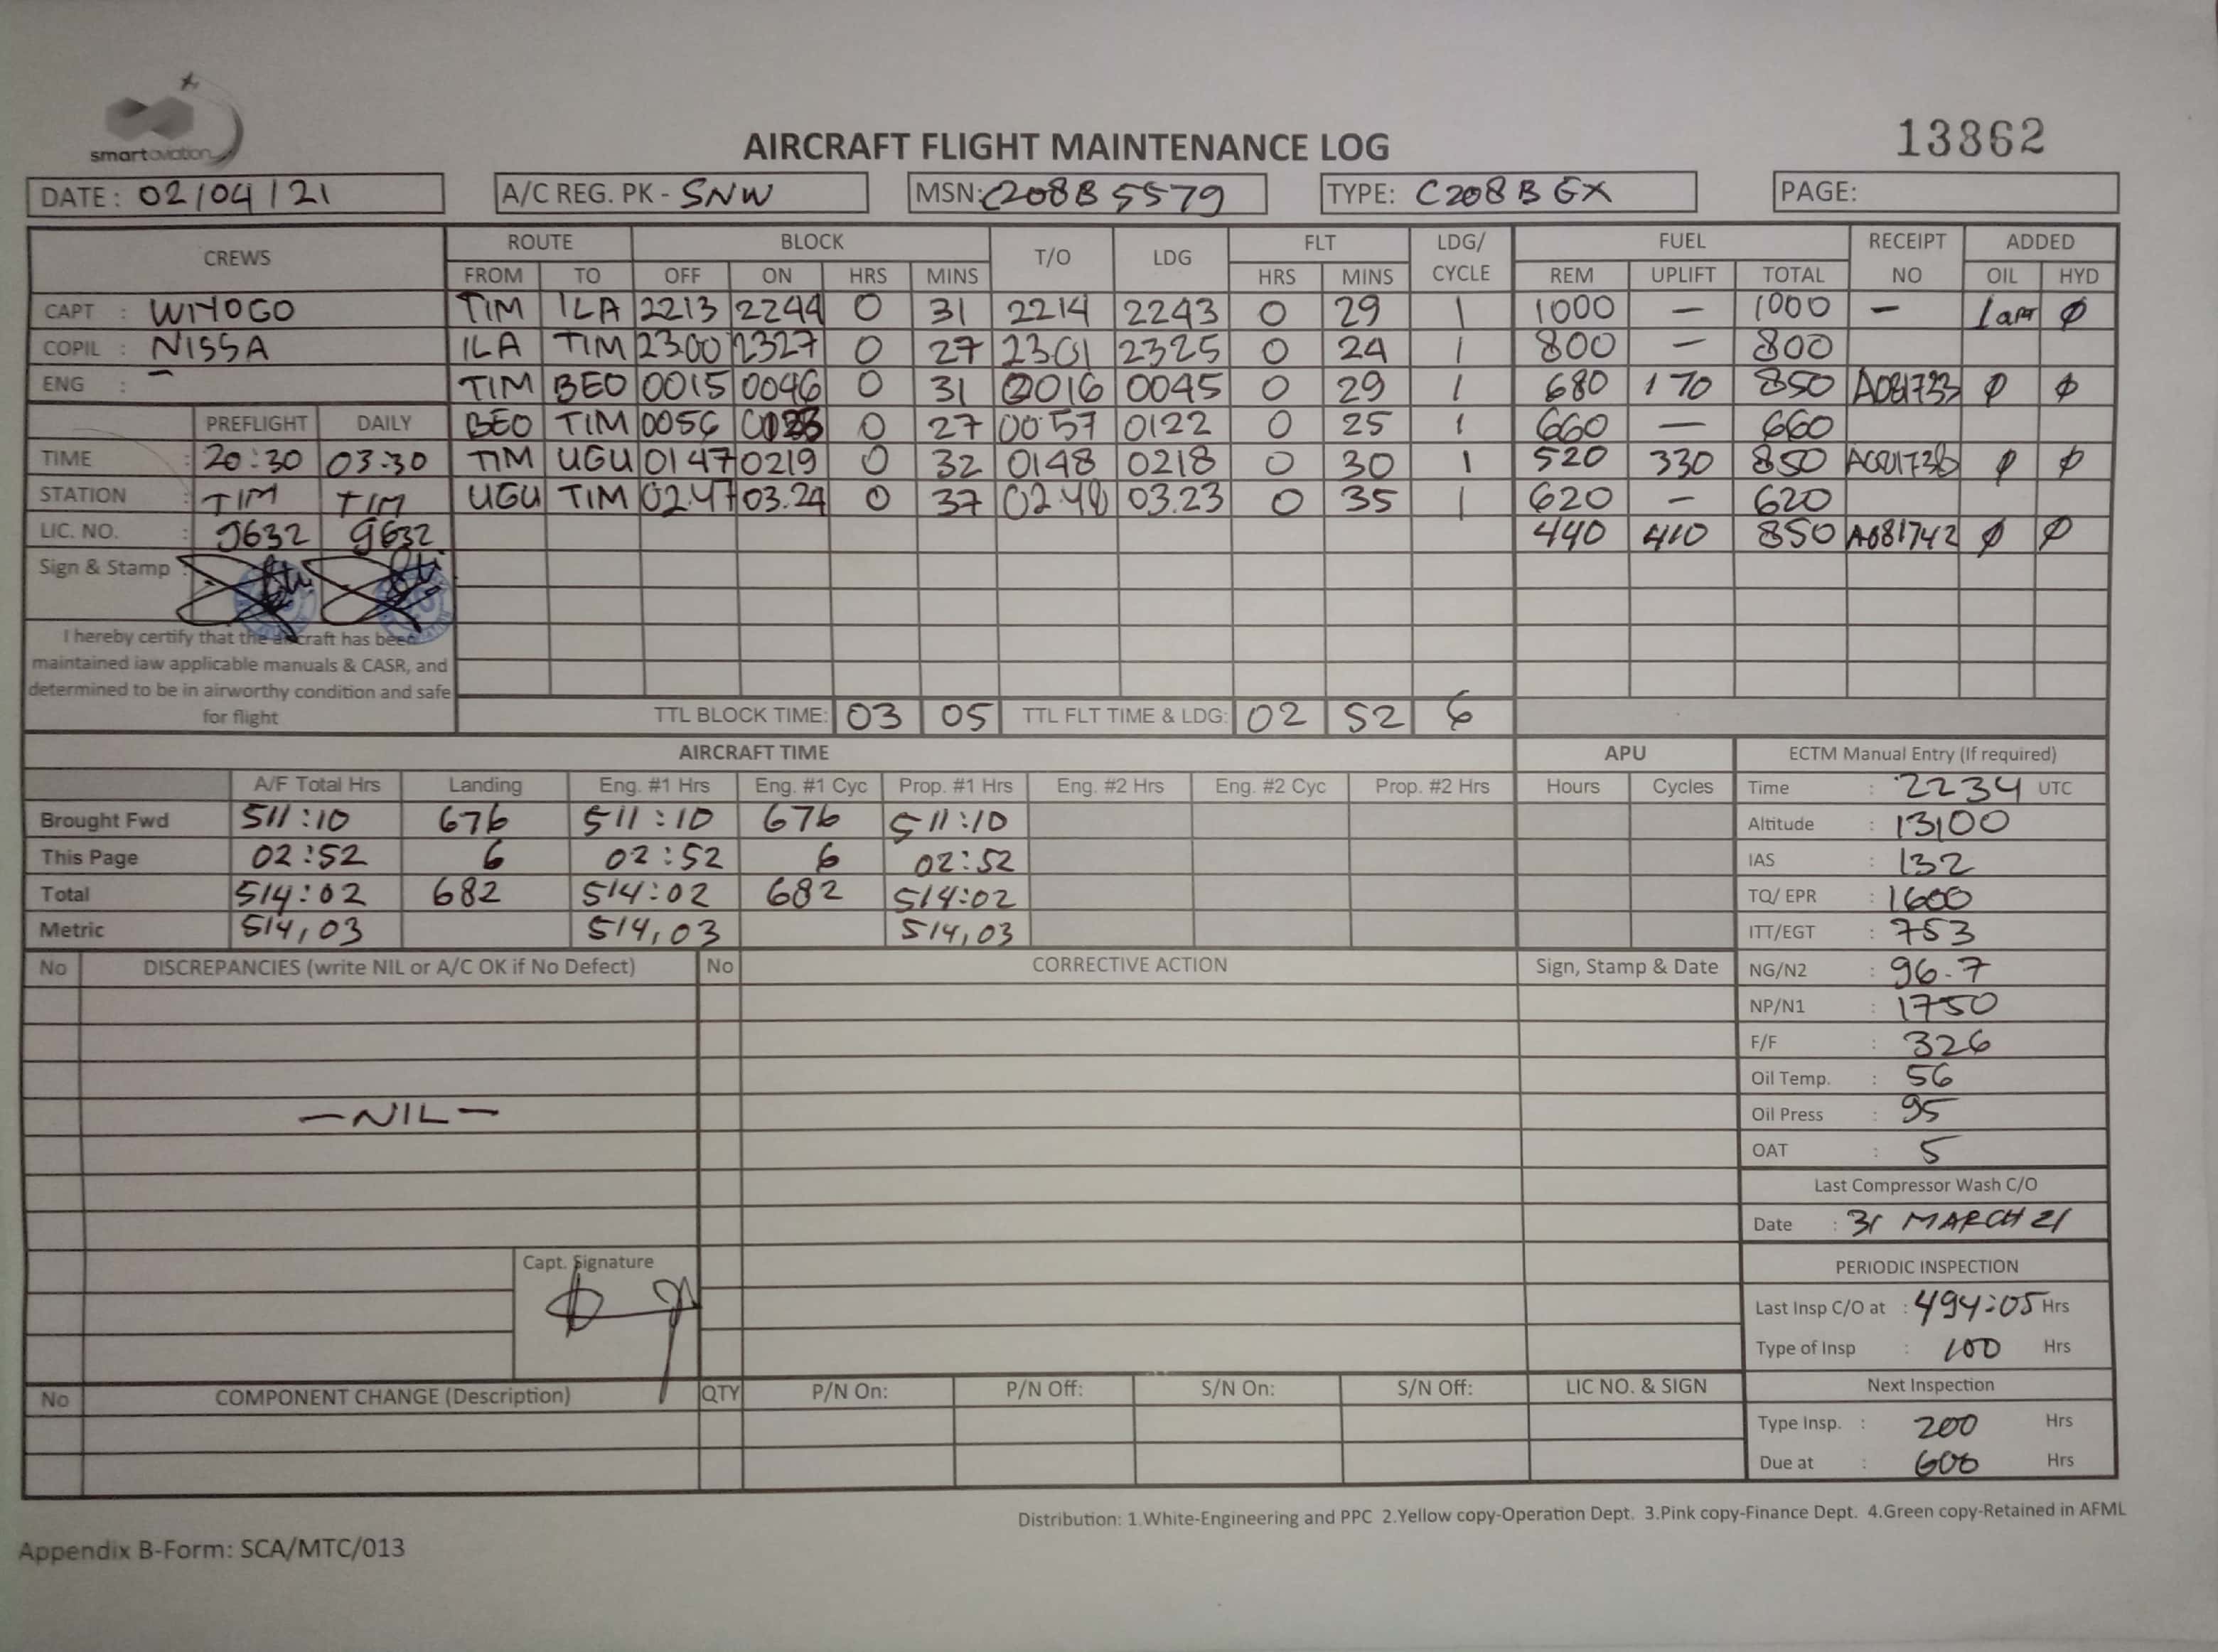 smart aviation
AIRCRAFT FLIGHT MAINTENANCE LOG
13862
DATE: 02/04/21 A/C REG. PK - SNW MSN: C208B 5579 TYPE: C208B GX PAGE:
CREWS ROUTE BLOCK T/O LDG FLT LDG/ CYCLE FUEL RECEIPT NO ADDED
FROM TO OFF ON HRS MINS HRS MINS REM UPLIFT TOTAL OIL HYD
CAPT : WIYOGO TIM ILA 2213 2244 0 31 2214 2243 0 29 1 1000 – 1000 – Ø
COPIL : NISSA ILA TIM 2300 2327 0 27 2301 2325 0 24 1 800 – 800
ENG : – TIM BEO 0015 0046 0 31 0016 0045 0 29 1 680 170 850 Ø Ø
PREFLIGHT DAILY BEO TIM 0056 0 27 0057 0122 0 25 1 660 — 660
TIME : 20:30 03:30 TIM UGU 0147 0219 0 32 0148 0218 0 30 1 520 330 850 Ø Ø
STATION : TIM TIM UGU TIM 02.47 03.24 0 37 02.48 03.23 0 35 1 620 – 620
LIC. NO. : 9632 9632 440 410 850 A081742 Ø Ø
Sign & Stamp :
I hereby certify that the aircraft has been
maintained iaw applicable manuals & CASR, and
determined to be in airworthy condition and safe
for flight
TTL BLOCK TIME: 03 05 TTL FLT TIME & LDG: 02 52 6
AIRCRAFT TIME APU ECTM Manual Entry (If required)
A/F Total Hrs Landing Eng. #1 Hrs Eng. #1 Cyc Prop. #1 Hrs Eng. #2 Hrs Eng. #2 Cyc Prop. #2 Hrs Hours Cycles Time : 2234 UTC
Brought Fwd 511:10 676 511:10 676 511:10 Altitude : 13100
This Page 02:52 6 02:52 6 02:52 IAS : 132
Total 514:02 682 514:02 682 514:02 TQ/ EPR : 1600
Metric 514,03 514,03 514,03 ITT/EGT : 753
No DISCREPANCIES (write NIL or A/C OK if No Defect) No CORRECTIVE ACTION Sign, Stamp & Date NG/N2 : 96.7
NP/N1 : 1750
F/F : 326
Oil Temp. : 56
—NIL—
Oil Press : 95
OAT : 5
Last Compressor Wash C/O
Date : 31 MARCH 21
Capt. Signature
PERIODIC INSPECTION
Last Insp C/O at : 494:05 Hrs
Type of Insp : 100 Hrs
No COMPONENT CHANGE (Description) QTY P/N On: P/N Off: S/N On: S/N Off: LIC NO. & SIGN Next Inspection
Type Insp. : 200 Hrs
Due at : Hrs
Distribution: 1.White-Engineering and PPC 2.Yellow copy-Operation Dept. 3.Pink copy-Finance Dept. 4.Green copy-Retained in AFML
Appendix B-Form: SCA/MTC/013